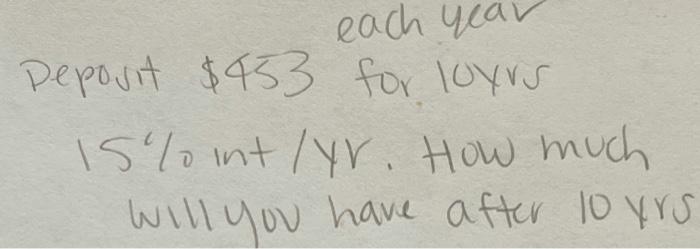 each year
Deposit $453 for 10yrs
15% int/yr. How much
will you have after 10 yrs